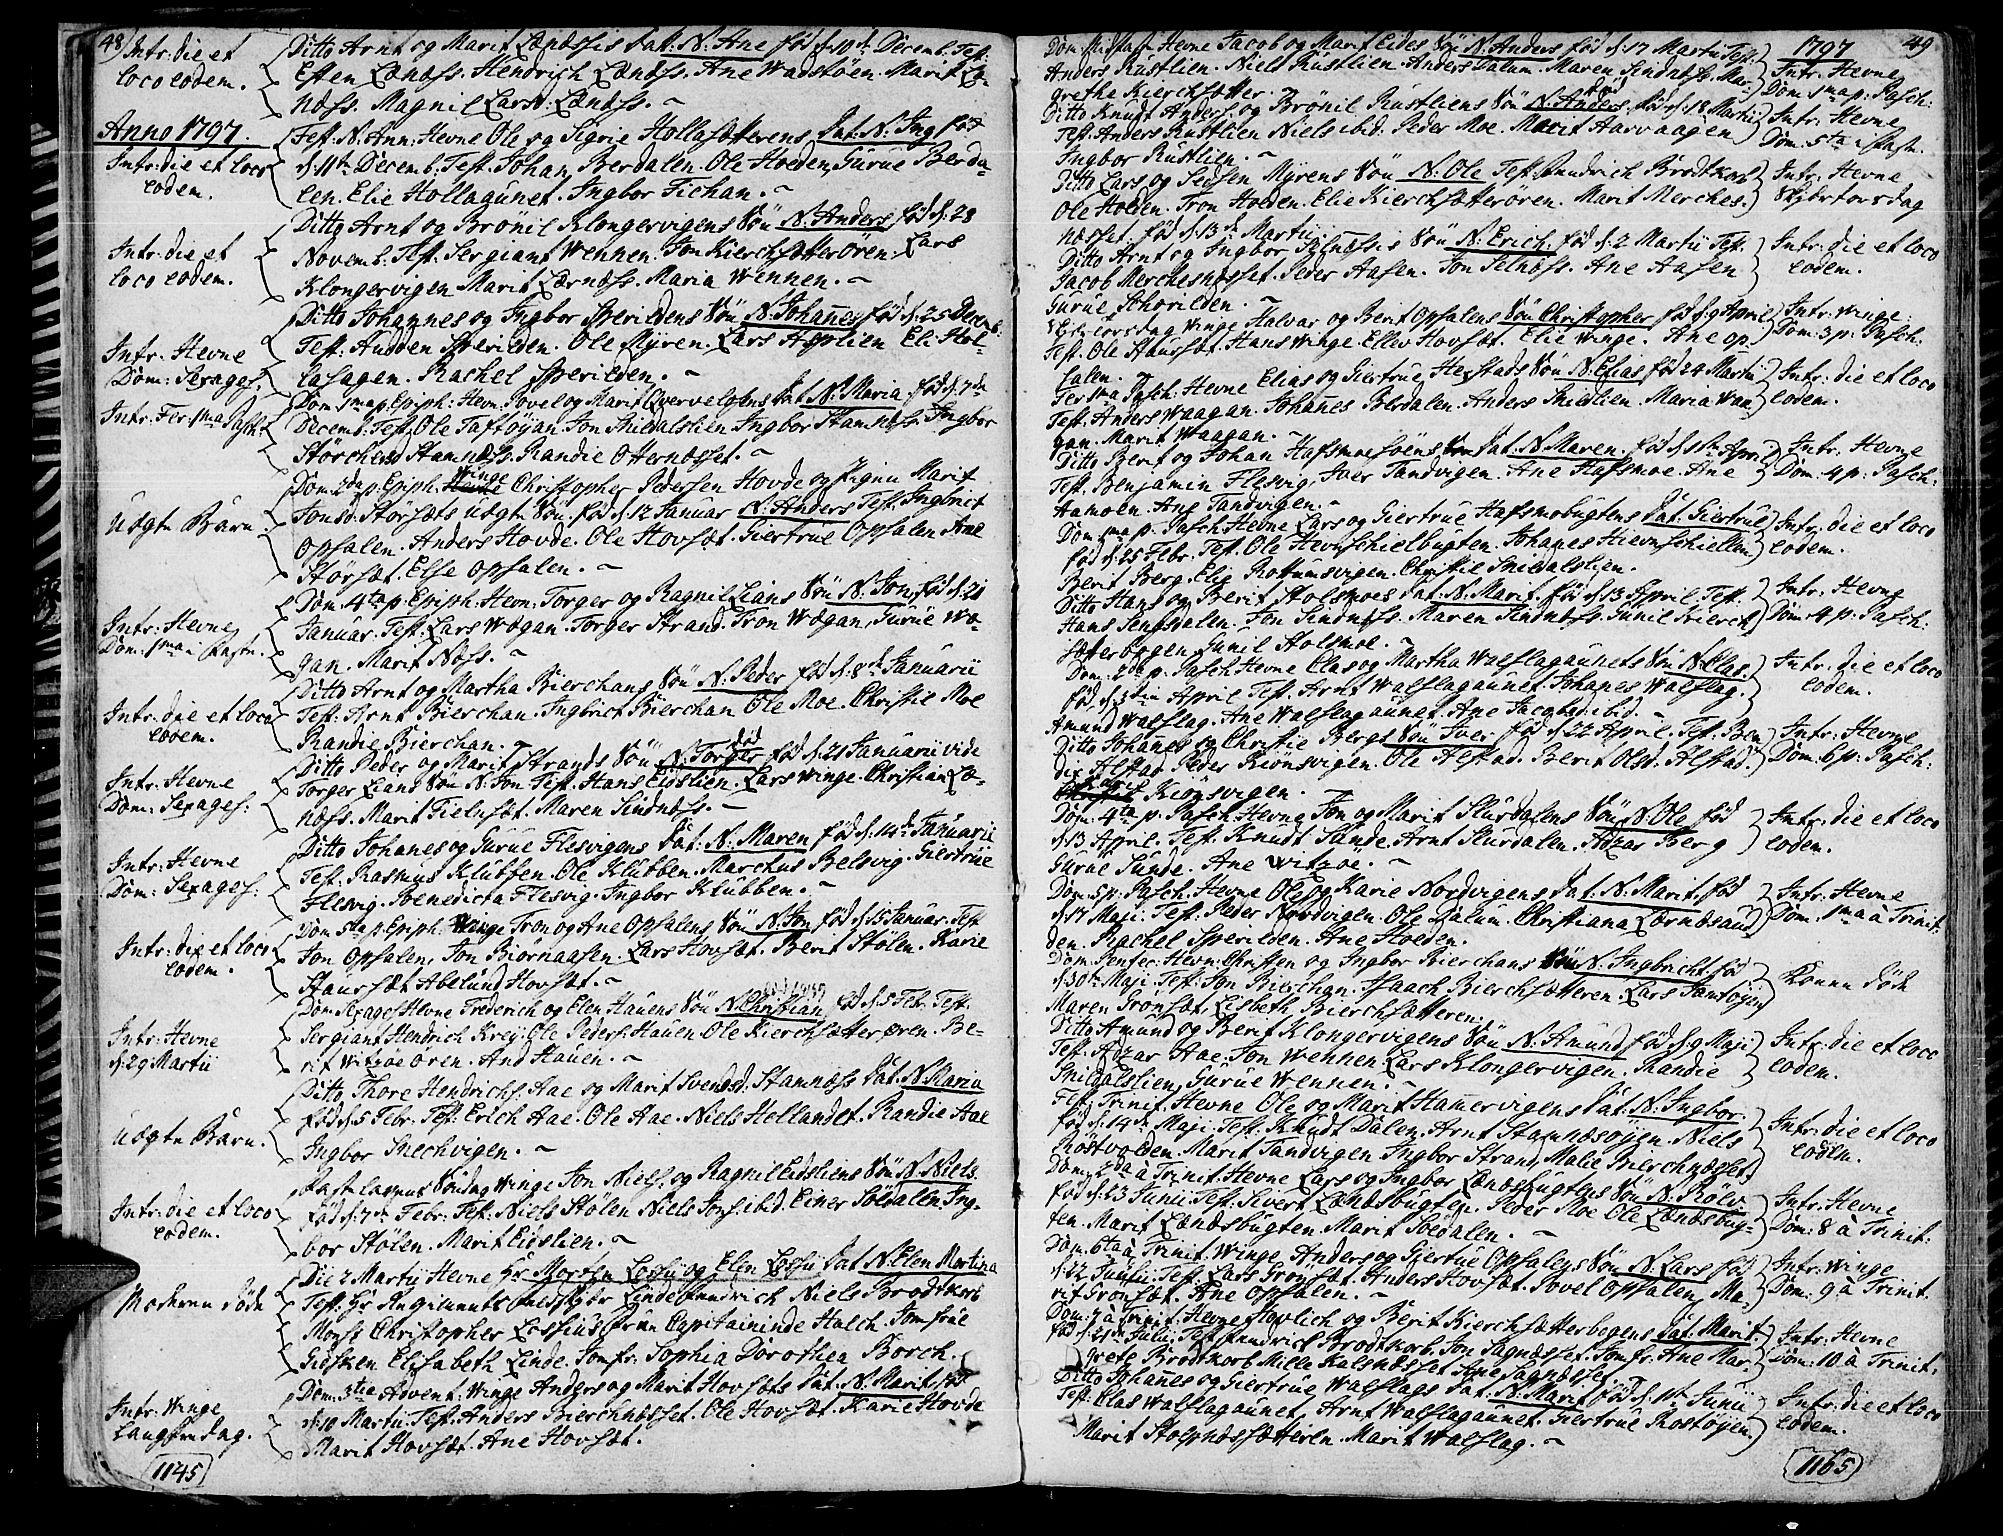 48
Intr: die et
loco eodem.
Ditto Arnt og Marit Lænæssis Dat. N: Ane fød d: 10de Decemb. Test:
Esten Lænæss. Hendrich Lænæss. Ane Wadstøen. Marit Læ-
næss. Magnil Larsd: Lænæss.
Anno 1797.
Intr: die et loco
eodem.
Fest: N. Ann: Hevne Ole og Sigrie Hollasætterens Dat. N: Ing fød
d: 11te Decemb: Test: Johan Berdalen. Ole Hoeden, Gurue Berda-
len. Elie Hollagunet. Ingbor Fichan.
Intr: die et
loco eodem.
Ditto Arnt og Brönil Klongervigens Sön N: Anders fød d: 28
Novemb. Test: Sergiant Wennen. Jon Kierchsætterøren. Lars
Klongervigen Marit Lærnæss. Maria Wennen.
Intr: Hevne
Dom: Sexages:
Ditto Johannes og Ingbor Sperildens Sön N: Johannes fød d: 25 Decemb.
Test: Audden Sperilden. Ole Myren. Lars Asplien Eli Hol-
lasagen. Rachel Sperilden.
Intr: Fer 1ma Pasch:
Dom 1ma p Epiph: Hevn: Povel og Marit Qvervelgens Dat N: Maria fød d: 7de
Decemb: Test. Ole Taftøyan. Jon Snildalslien Ingbor Stamnæss. Ingbor
Störchens Stamnæss. Randie Otternæsset.
Uægte Barn
Dom: 2da p. Epiph: Winge Christopher Pedersen Hovde og Pigen Marit
Jonsd: Storsæts uægte Sön fød d: 12 Januar N: Anders Test. Ingbrit
Opsalen. Anders Hovde. Ole Hovsæt. Giertrue Opsalen Ane
Störsæt. Else Opsalen.
Intr: Hevne
Dom: 1ma Pasche.
Dom: 4ta p: Epiph: Hevn: Torger og Ragnil Lians Sön N: Jon, fød d: 21
Januar. Test. Lars Wægan. Torger Strand. Tron Wægan, Gurue Wæ-
gan. Marit Noss.
Intr: die et loco
eodem.
Ditto Arnt og Martha Bierchans Sön N: Peder fød d: 8de Januarii
Test: Arnt Bierchan. Ingbrict Bierchan Ole Moe. Christie Moe
Randie Bierchan.
Intr: Hevne
Dom: Sexages:
Ditto Peder og Marit Strands Sön N: Torger fød d: 21 Januarii vide
Torger Lians Sön N: Jon Test: Hans Eidslien. Lars Winge. Christian Læ-
næss. Marit Fielnsöt. Maren Sindnæss.
Intr: Hevne
Dom: Sexages:
Ditto Johanes og Gurue Flesvigens Dat: N: Maren fød d: 14de Januarii
Test: Rasmus Klubben. Ole Klubben. Marchus Belsvig. Giertrue
Flesvig. Benedicta Flesvig. Ingbor Klubben.
Intr: die et loco
eodem.
Dom 5ta p Epiph: Winge Tron og Ane Opsalens Sön N: Jon fød d: 15 Januar. Test
Jon Opsalen, Jon Biørnaasen. Lars Hovsæt. Berit Stølen. Karie
Staursæt Abelund Hovsæt.
Intr: Hevne
d: 29 Martii
Dom Sexages Hevne Frederich og Elen Hauens Sön N: Christian fød d: 5 Febr. Test.
Sergiant Hendrich Krey. Ole Peders: Hauen Ole Kierchsætterøren. Be-
rit Witsøe Ören. And Hauen.
Uægte Barn.
Ditto Thore Hendrichs. Aae og Marit Svendsd. Stamnæss Dat. N: Maria
fød d: 5 Febr. Test. Erich Aae. Ole Aae. Niels Hellandet. Randie Aae
Ingbor Snechvigen.
Intr: die et loco
eodem.
Fastelavens Söndag Winge Jon Niels: og Ragnil Eidsliens Sön N: Niels
fød d: 7de Febr: Test: Niels Stølen Niels Jonse ibid. Einer Soedalen. Ing-
bor Stølen. Marit Eidslien.
Moderen Döde
Die 2 Martij Hevne Hr Morten Lossii og Elen Lossii Dat N: Elen Martina
Test: Hr Regiments Feldskjær Linde Hendrich Niels Brodtkorb
Monss Christopher Lossius Frue Capitaininde Halch. Jomfrue
Giesken Elisabeth Linde. Jomfr: Sophia Dorothea Borch.
Intr: Winge
Langfredag.
Dom: 3tia Advent: Winge Anders og Marit Hovsæts Dat. N: Marit fød
d: 10 Martii Test: Anders Bierchnæsset. Ole Hovsæt. Karie Hovde
Marit Hovsæt. Ane Hovsæt.
1145
1797
49
Dom: Midfast Hevne Jacob og Marit Eides Sön N: Anders fød d: 17 Martii Test.
Anders Rustlien. Niels Rustlien. Anders Dalum. Maren Sindnæss. Mar-
grethe Kierchsætter.
Intr: Hevne
Dom: 1ma p: Pasch:
Ditto Knudt Anders: og Brönil Rustliens Sön N: Anders fød d: 12 Martii
Test: Anders Rustlien Niels ibid. Peder Moe. Marit Aarvaagen
Ingbor Rustlien.
Intr: Hevne
Dom: 5ta Pasch.
Ditto Lars og Myrens Sön N: Ole Test. Hendrich Brodtkorb
Ole Hoeden. Tron Hoeden. Elie Kierchsætterören. Marit Merches-
næsset. fød d: 13de Martii
Intr: Hevne
Skjertorsdag
Ditto Arnt og Ingbor Selnæssis Sön N: Erich fød d: 2 Martii Test.
Jacob Merchesnæsset. Peder Aasen. Jon Selnæss. Ane Aasen
Gurue Schorilden.
Intr: die et loco
eodem.
Skjertorsdag Winge Halvar og Berit Opsalens Sön Christopher fød d: 9 April
Test. Ole Staursæt. Hans Winge. Ellev Hovsæt. Elie Winge. Ane Op-
salen.
Intr: Winge:
Dom: 3 p: Pasch.
Fer 1ma Pasch: Hevne Elias og Giertrue Hegstads Sön N: Elias fød 24 Martii
Test: Anders Waagan. Johanes Berdalen. Anders Snieslien. Maria Waa-
gan. Marit Waagan.
Intr: die et loco
eodem.
Ditto Berit og Johan Hafsmoesøens Dat. N: Maren fød d: 1te April
Test. Benjamin Flesvig, Iver Tandvigen. Ane Hafsmoe. Ane
Hamoen. Ane Tandvigen.
Intr: Hevne
Dom: 4 p: Pasch:
Dom 1ma p. Pasch: Hevne Lars og Giertrue Hafsmobugtens Dat: Giertrue
fød d: 25 Febr. Test. Ole Hevnschielbugten. Johanes Hievnschiellen
Berit Berg. Elie Rottumsvigen. Christie Snildalslien.
Intr: die et loco
eodem.
Ditto Hans og Berit Stolsmoes Dat. N: Marit fød d: 13 April. Test.
Hans Lengsdalen. Jon Sindnæss. Maren Sindnæss. Gunil Kierch-
sætterbogen. Gunil Holsmoe.
Intr: Hevne
Dom: 4 p: Pasch:
Dom: 2da p. Pasch Hevne Clas og Martha Walslagaunets Sön N: Clas.
fød d: 3die April Test. Arnt Walslagaunet. Johanes Walslag.
Amund Walslag. Ane Walslagaunet. Ane Jacobsd ibid.
Intr: die et loco
eodem.
Ditto Johanes og Christie Bergs Sön Iver fød d: 22 April. Test. Ben-
dix Alstad Peder Kiönsvigen. Ole Alstad. Berit Olsd. Alstad.
Kiönsvigen.
Intr: Hevne
Dom: 6 p: Pasch:
Dom: 4ta p. Pasch. Hevne Jon og Marit Slurdalens Sön N: Ole fød
d: 13 April. Test. Knudt Sunde. Arnt Slurdalen. Adzar Berg
Gurue Sunde. Ane Witzoe.
Intr: die et loco
eodem.
Dom: 5 p: Pasch. Hevne Ole og Karie Nordvigens Dat. N: Marit fød
d: 17 Maji. Test. Peder Nordvigen. Ole Dalum. Christiana Lærnæsau-
den. Rachel Sperilden. Ane Hoeden.
Intr: Hevne
Dom: 1ma à Trinit:
Dom: Pentec: Hevn: Christen og Ingbor Bierchans Sön N: Ingbricht fød
d: 30te Maji. Test: Jon Bierchan. Isaach Bierchsætteren. Lars Tantøyen
Maren Tronsæt. Lisbeth Bierchsætteren.
Konen Döde
Ditto Amund og Berit Klongervigens Sön N: Amund fød d: 9 Maji
Test. Adzar Aae. Jon Wennen Lars Klongervigen. Randie
Snildalslien, Gurue Wennen.
Intr: die et loco
eodem.
Fest. Trinit. Hevne Ole og Marit Hamervigens Dat. N: Ingbor.
fød d: 14de Maji. Test: Knudt Dalen. Arnt Stamnæsøyen. Niels
Röstvolden. Marit Tandvigen Ingbor Strand, Malie Bierchnæsset.
Intr: die et loco
eodem.
Dom. 2da à Trinit. Hevne Lars og Ingbor Lænæsbugtens Sön N: Rölv.
fød d: 13 Junii. Test. Sivert Lænæsbugten. Peder Moe Ole Lænæsbug-
ten. Marit Lænæsbugten. Marit Soedalen.
Intr: Hevne
Dom: 8 à Trinit:
Dom: 6ta à Trinit. Winge Anders og Giertrue Opsalens Sön N: Lars fød
d: 22 Julii. Test. Lars Grønsæt. Anders Hovsæt. Povel Opsalen, Ma-
rit Tronsæt. Ane Opsalen.
Intr: Winge
Dom: 9 à Trinit.
Dom: 7 à Trinit: Hevne Hovlich og Berit Kierchsætterbogens Dat. Marit.
fød d: 21de Julii. Test. Hendrich Brodtkorb. Jon Sagnæsset. Jomfr. Ane Mar-
grete Brodtkorb Mille Kalsnæsset. Ane Sagnæsset.
Intr: Hevne
Dom: 10 à Trinit.
Ditto Johanes og Giertrue Walslags Dat. N: Marit fød d: 1te Junii
Test. Clas Walslagaunet, Arnt Walslagaunet. Giertrue Rostøyen.
Marit Stolpnæssætteren. Marit Walslag.
Intr: die et loco
eodem.
1165